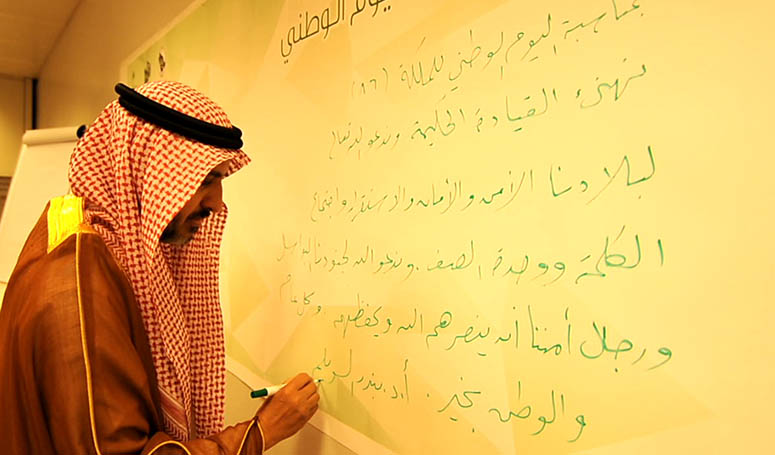 يوم الوطني
بمناسبة اليوم الوطني للمملكة (٨٦)
نهنئ القيادة الحكيمة وندعو الله تعالى
لبلادنا الأمن والأمان والاستقرار واجتماع
الكلمة ووحدة الصف. وندعو الله لجنودنا البواسل
ورجال أمننا أن ينصرهم الله ويحفظهم. وكل عام
والوطن بخير. أ.د. بندر السويلم